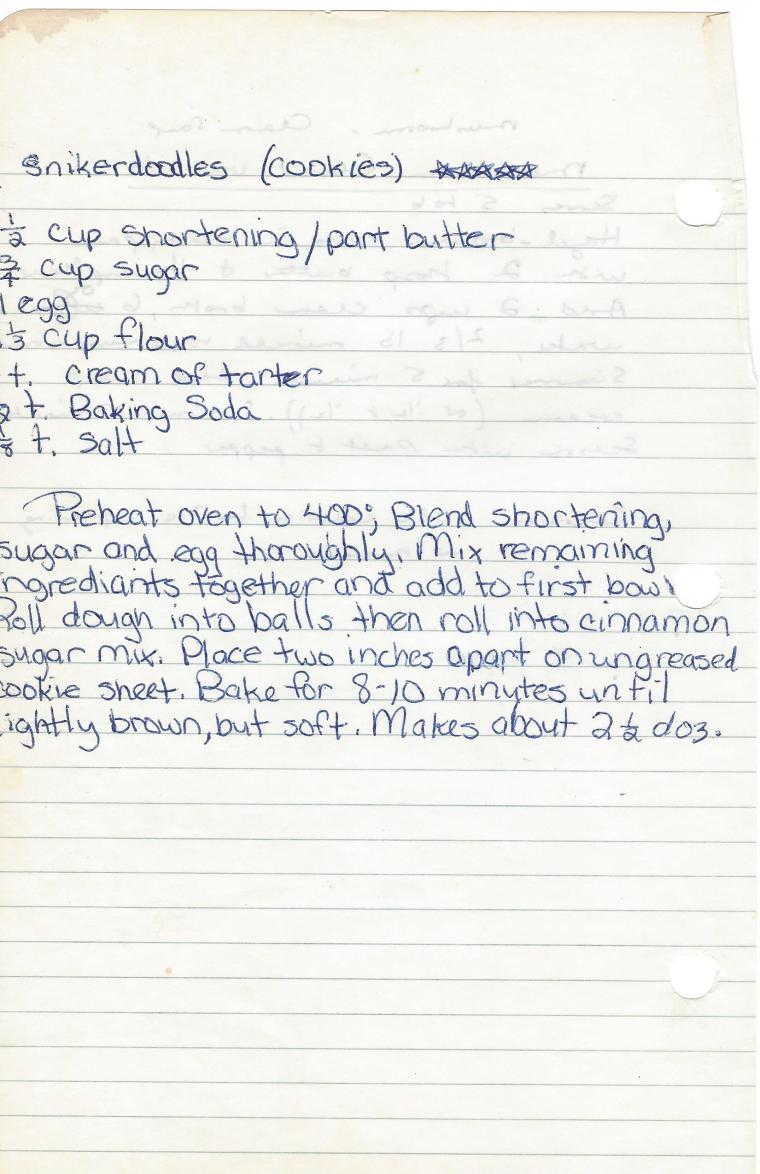 snikerdoodles (cookies) ☆☆☆☆☆
1/2 cup shortening/part butter
3/4 cup sugar
1 egg
1/3 cup flour
t. cream of tarter
2 t. Baking Soda
1/8 t. salt
Preheat oven to 400°; Blend shortening,
sugar and egg thoroughly. Mix remaining
ingrediants together and add to first bowl
Roll dough into balls then roll into cinnamon
sugar mix. Place two inches apart on ungreased
cookie sheet. Bake for 8-10 minutes until
lightly brown, but soft. Makes about 2 1/2 doz.